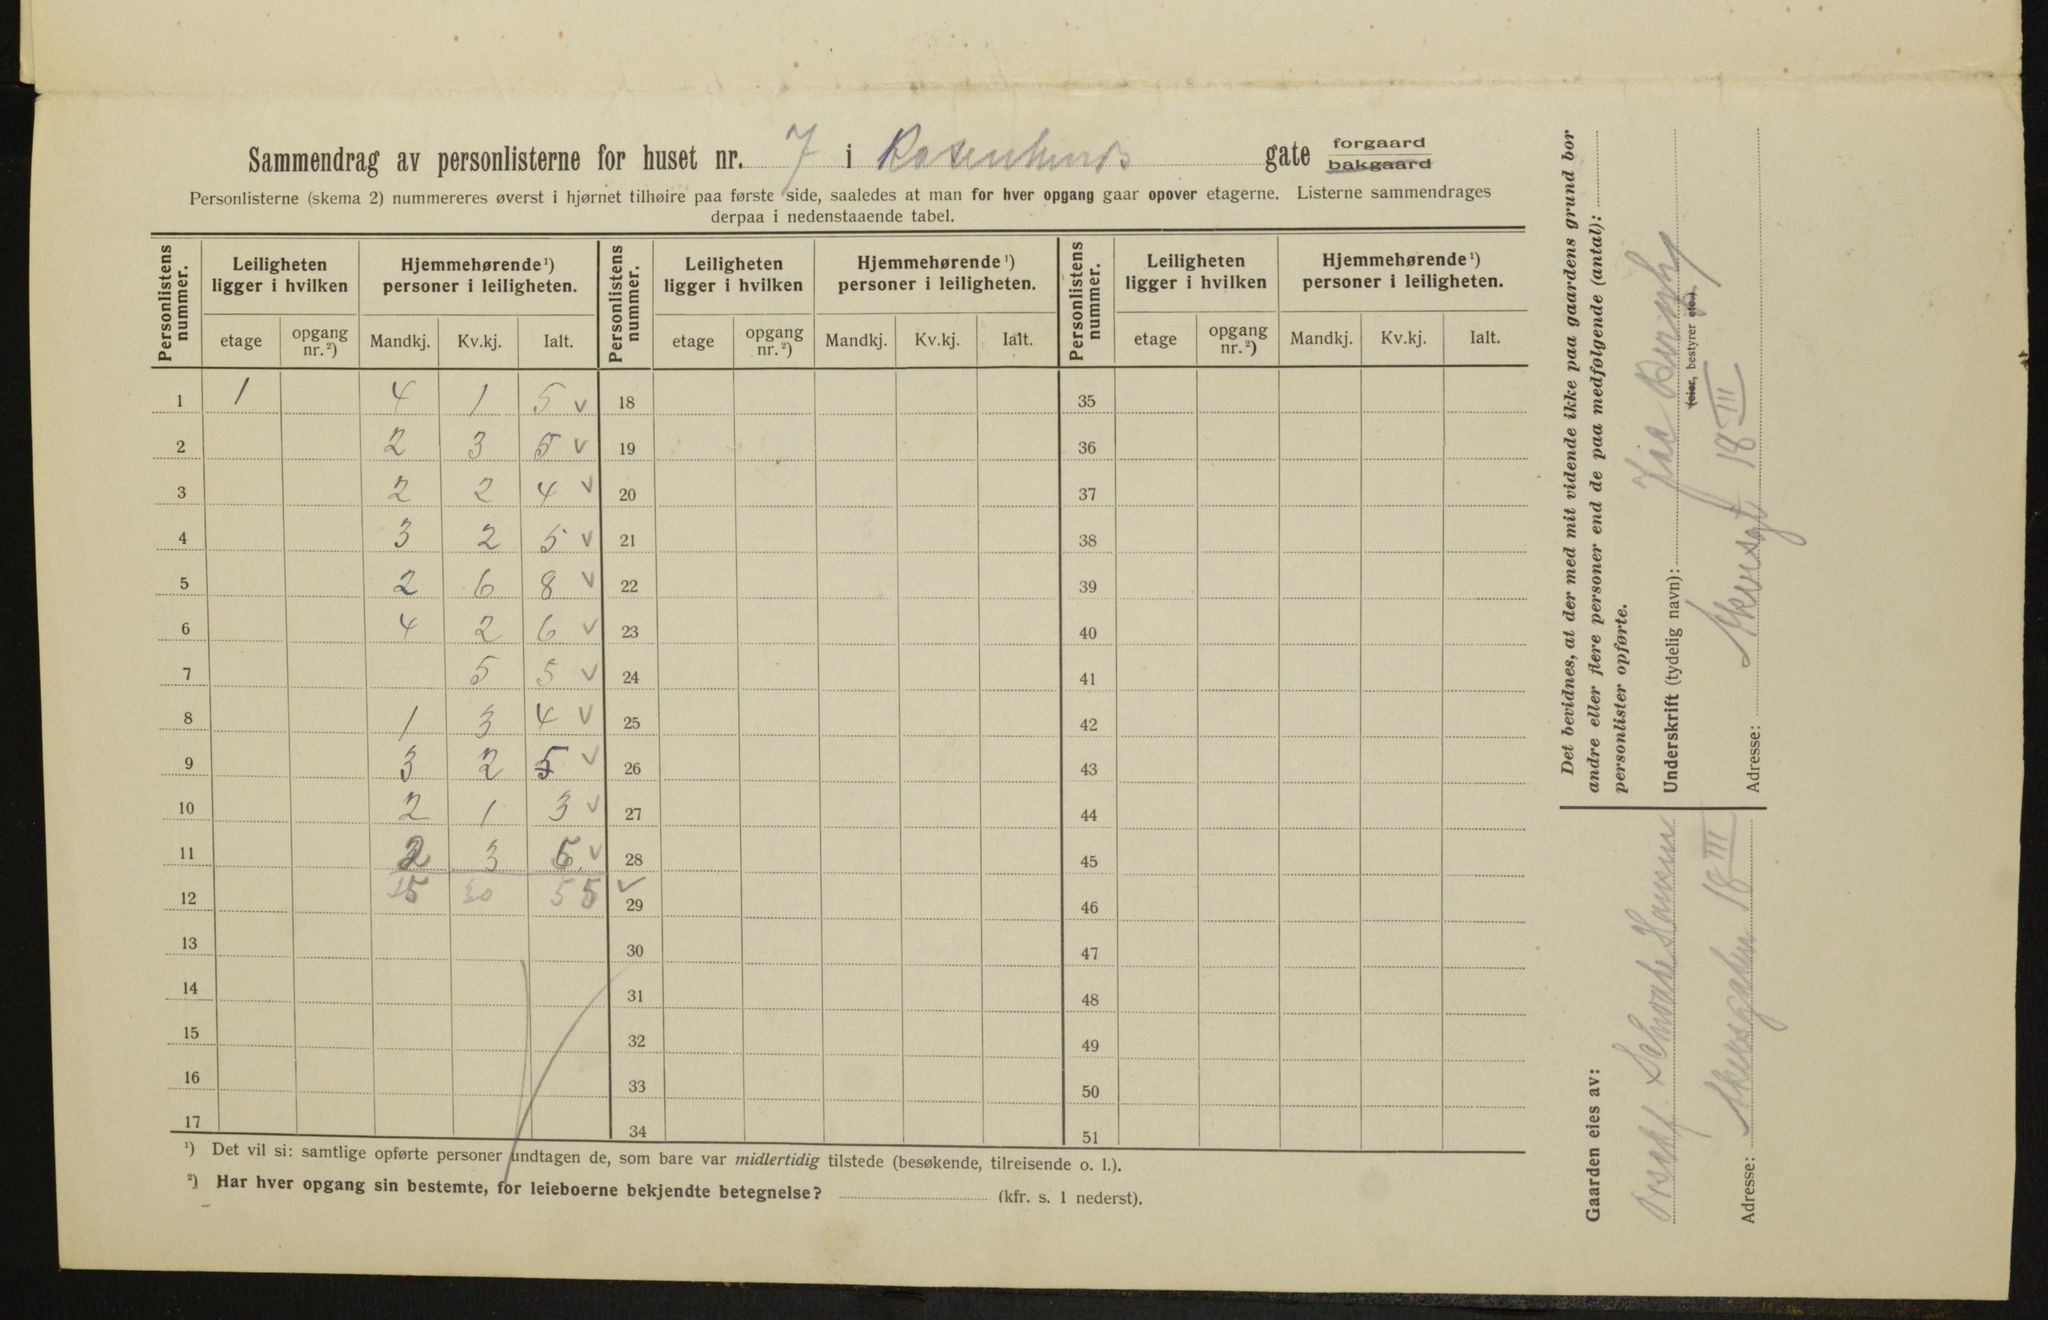 Sammendrag av personlisterne for huset nr. 7 i Rosenlunds gate forgaard bakgaard
Personlisterne (skema 2) nummereres øverst i hjørnet tilhøire paa første side, saaledes at man for hver opgang gaar opover etagerne. Listerne sammendrages
derpaa i nedenstaaende tabel.
Personlistens nummer. Leiligheten ligger i hvilken Hjemmehørende ¹) personer i leiligheten. Personlistens nummer. Leiligheten ligger i hvilken Hjemmehørende ¹) personer i leiligheten. Personlistens nummer. Leiligheten ligger i hvilken Hjemmehørende ¹) personer i leiligheten.
etage opgang nr. ²) Mandkj. Kv.kj. Ialt. etage opgang nr. ²) Mandkj. Kv.kj. Ialt. etage opgang nr. ²) Mandkj. Kv.kj. Ialt.
1 1 4 1 5 v 18 35
2 2 3 5 v 19 36
3 2 2 4 v 20 37
4 3 2 5 v 21 38
5 2 6 8 v 22 39
6 4 2 6 v 23 40
7 5 5 v 24 41
8 1 3 4 v 25 42
9 3 2 5 v 26 43
10 2 1 3 v 27 44
11 2 3 5 v 28 45
12 25 30 55 ✓ 29 46
13 30 47
14 31 48
15 32 49
16 33 50
17 34 51
¹) Det vil si: samtlige opførte personer undtagen de, som bare var midlertidig tilstede (besøkende, tilreisende o. l.).
²) Har hver opgang sin bestemte, for leieboerne bekjendte betegnelse? (kfr. s. 1 nederst).
Det bevidnes, at der med mit vidende ikke paa gaardens grund bor
andre eller flere personer end de paa medfølgende (antal):
personlister opførte.
Underskrift (tydelig navn):
(eier, bestyrer etc.)
Adresse: Akersgt 18 III
Gaarden eies av:
Schwabe Hansen
Adresse: Akersgaten 18 III